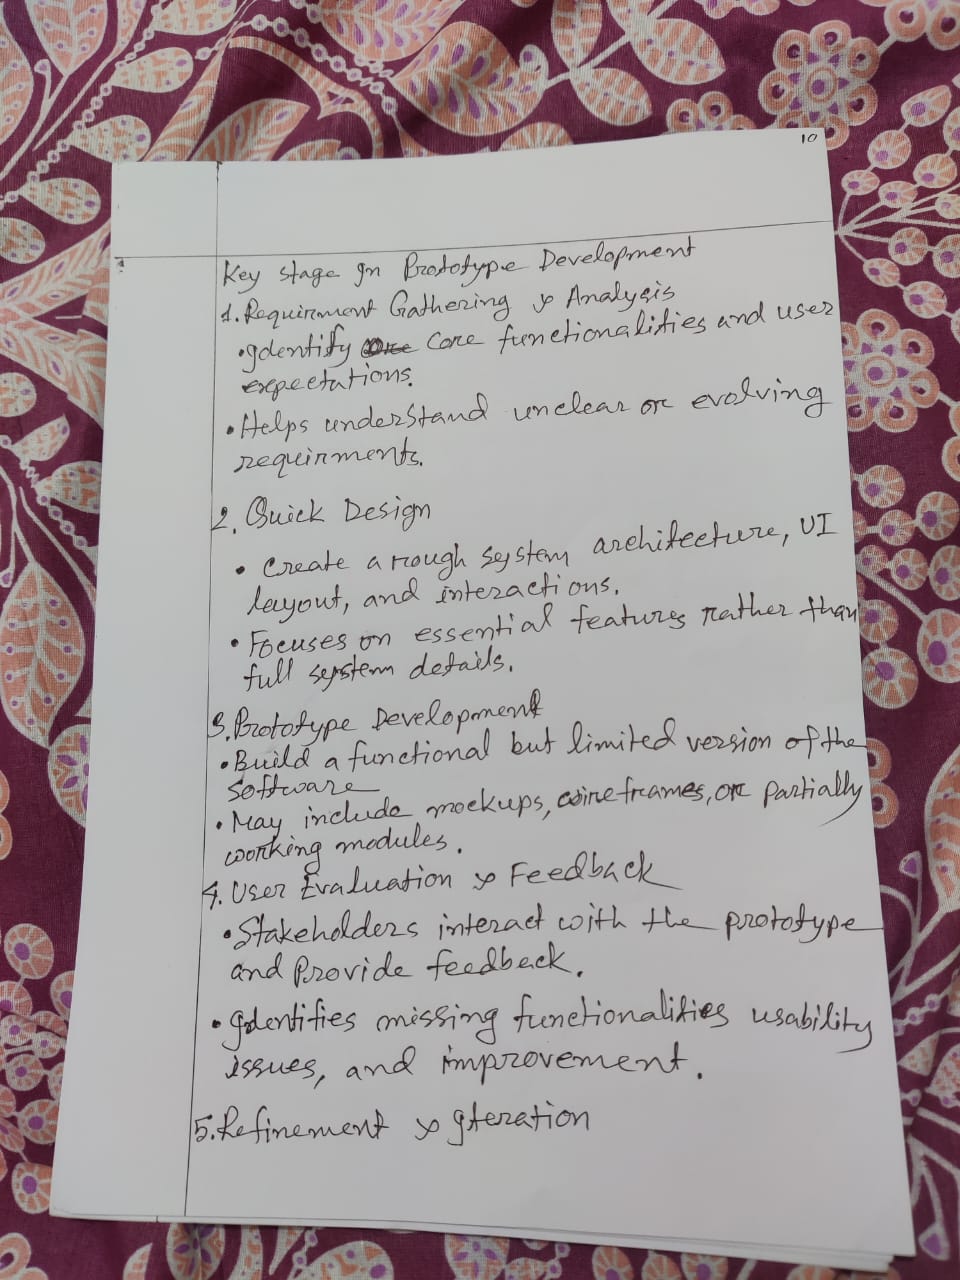 10
Key stage In Prototype Development
1. Requirment Gathering & Analysis
• Identify Core functionalities and user
expectations.
• Helps understand unclear or evolving
requirments.
2. Quick Design
• Create a rough system architecture, UI
layout, and interactions.
• Focuses on essential features rather than
full system details.
3. Prototype Development
• Build a functional but limited version of the
software
• May include mockups, wireframes, or partially
working modules.
4. User Evaluation & Feedback
• Stakeholders interact with the prototype
and Provide feedback.
• Identifies missing functionalities usability
issues, and improvement.
5. Refinement & Iteration